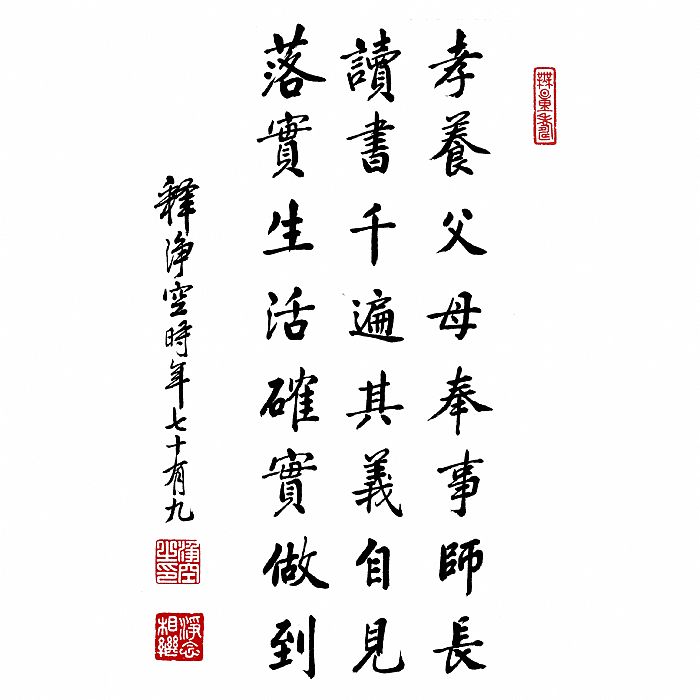 孝養父母奉事師長
讀書千遍其義自見
落實生活確實做到
釋淨空時年七十有九
淨空之印
淨念相繼